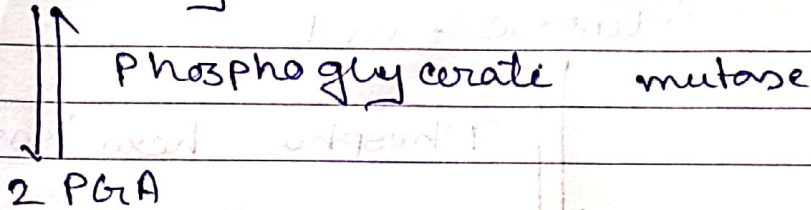 Phosphoglycerate mutase
2 PGA